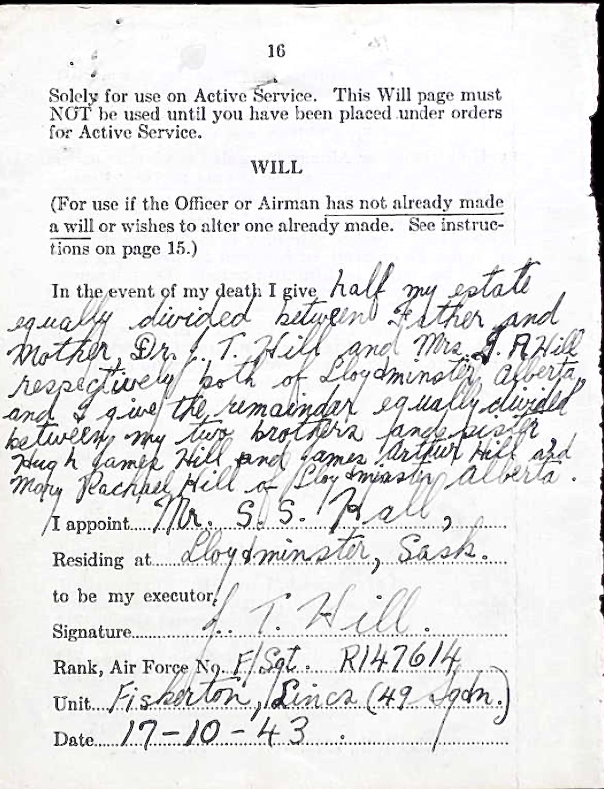 16
Solely for use on Active Service. This Will page must
NOT be used until you have been placed under orders
for Active Service.
WILL
(For use if the Officer or Airman has not already made
a will or wishes to alter one already made. See instruc-
tions on page 15.)
In the event of my death I give half my estate
equally divided between Father and
Mother, Dr. T. Hill and Mrs. J. A Hill
respectively both of Lloydminster, Alberta,
and I give the remaindar equally divided
between my two brothers and sister
Hugh James Hill and James Arthur Hill and
Mary Rachael Hill of Lloydminster Alberta.
I appoint Mr. S. S. Hall,
Residing at Lloydminster, Sask.
to be my executor.
Signature T. Hill.
Rank, Air Force No. F/Sgt. R147614
Unit Fiskerton, Lincs (49 Sqdn.)
Date 17-10-43.